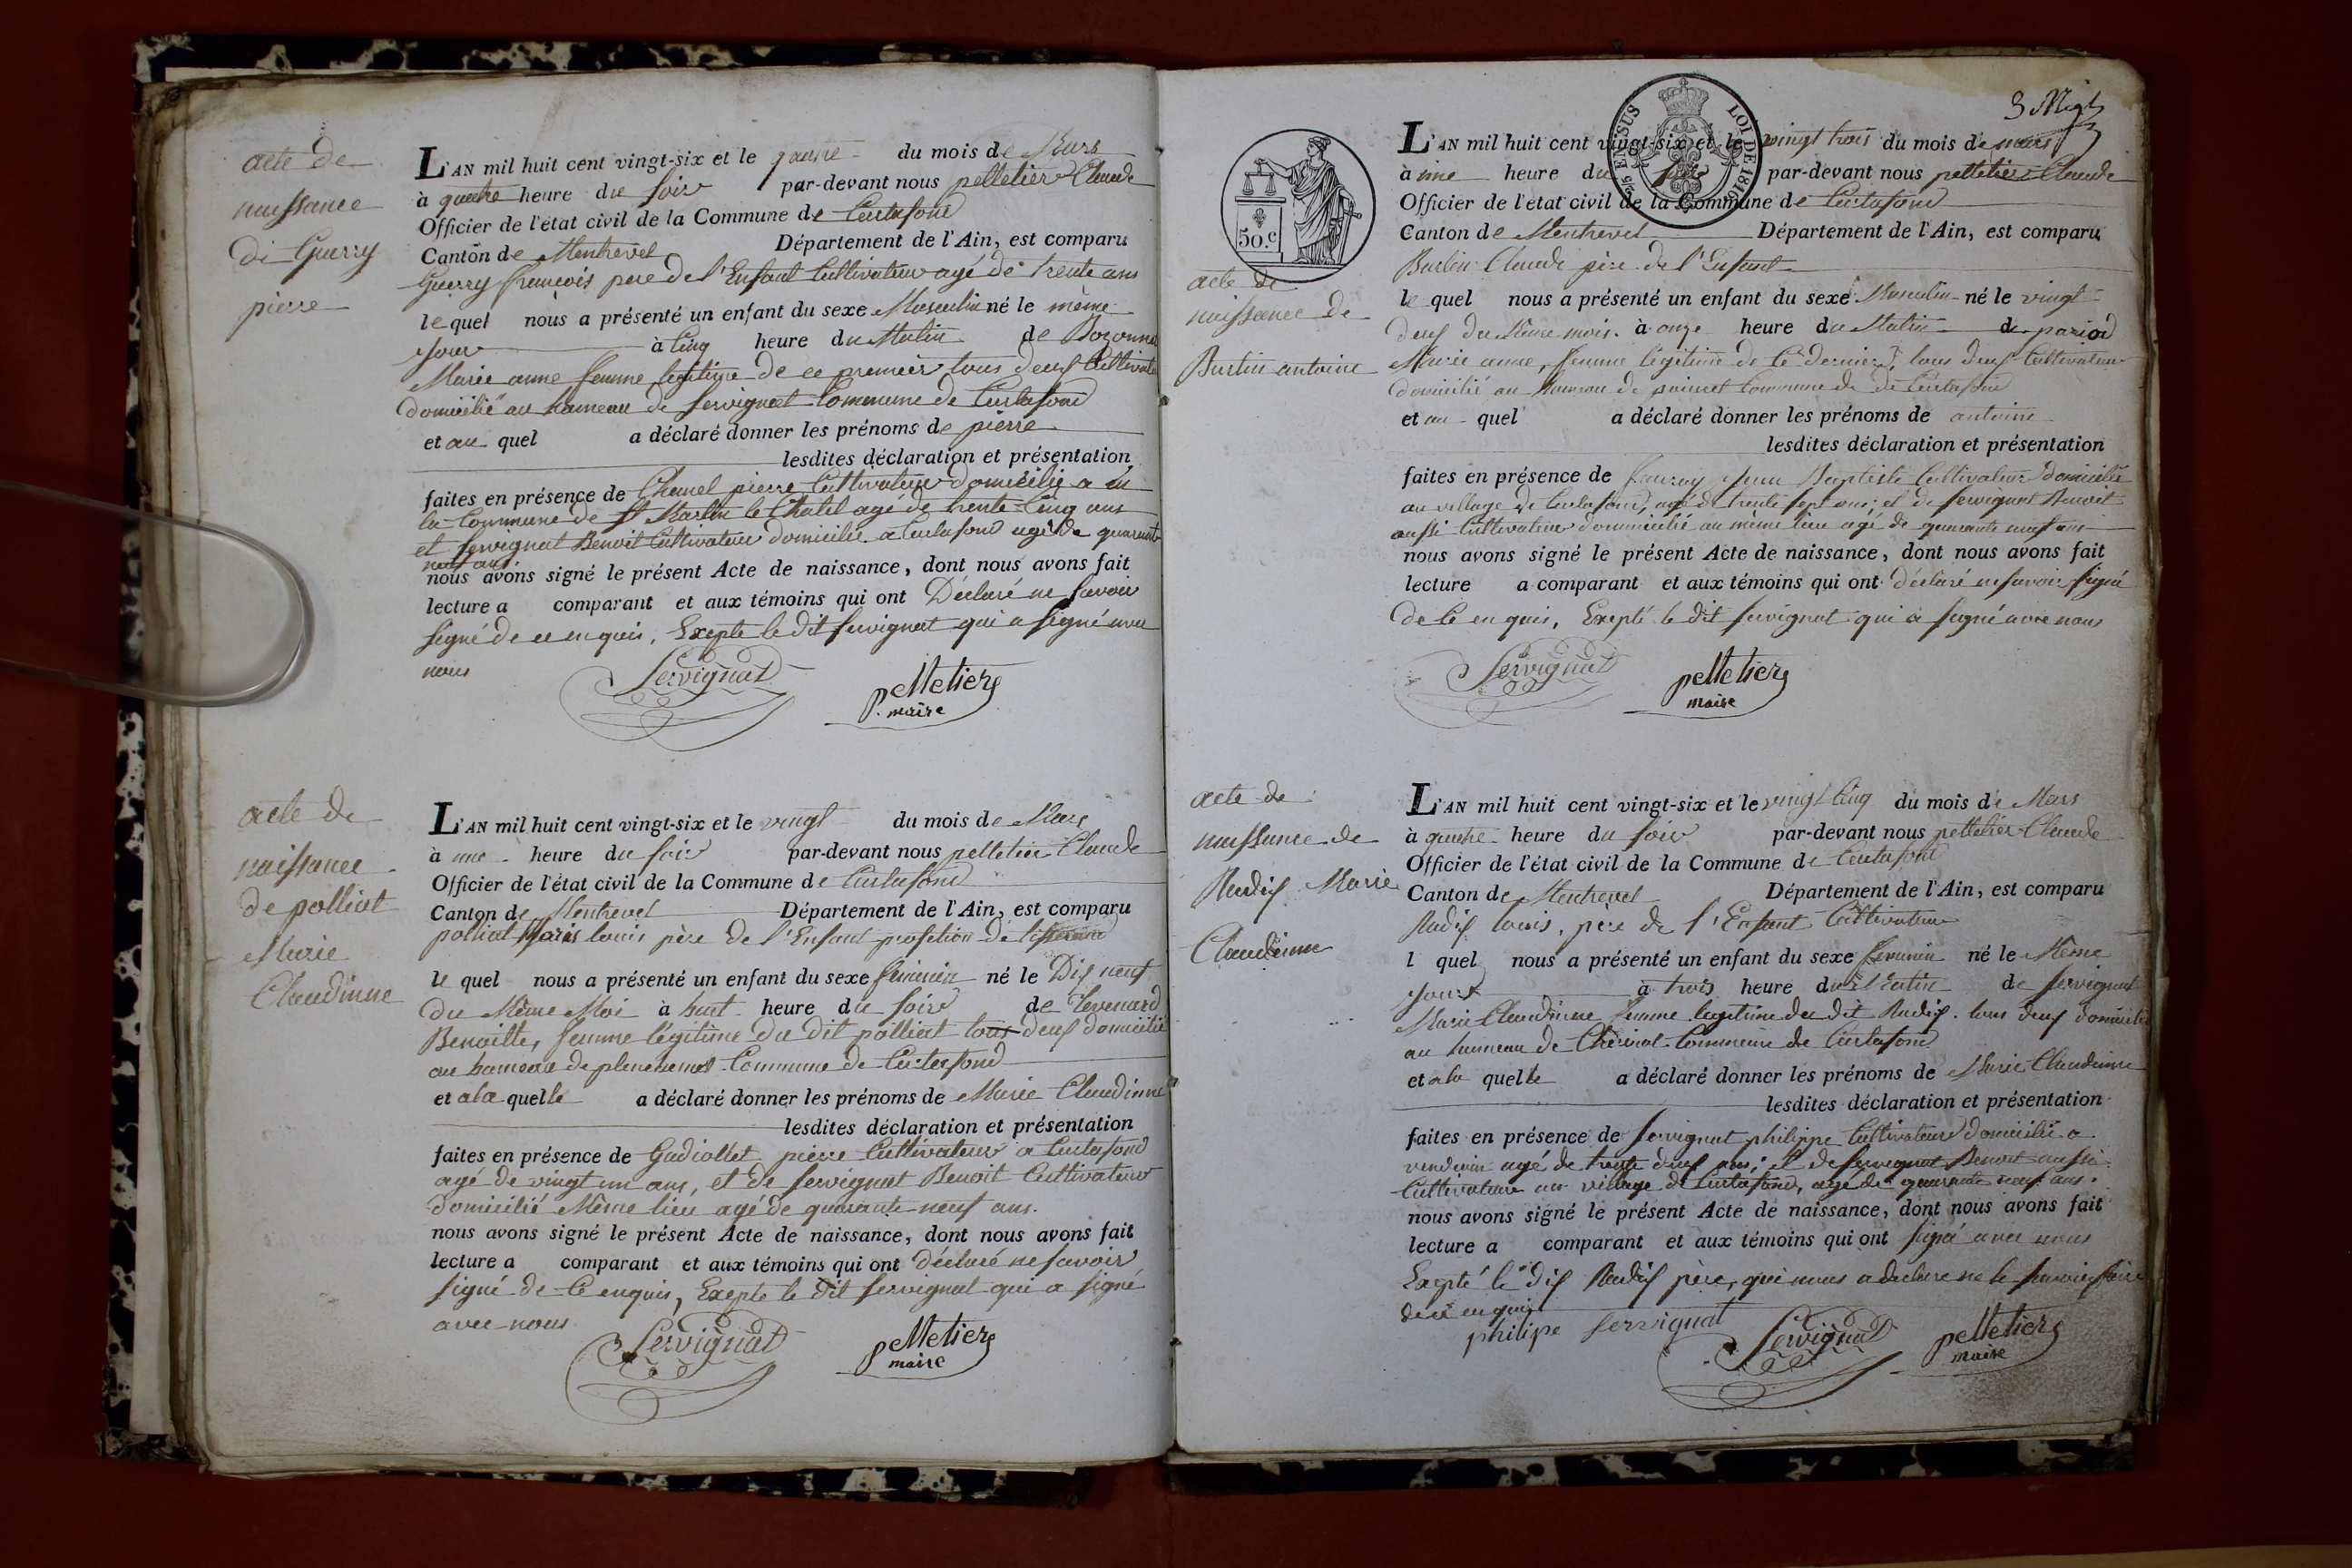 acte de
naissance
de Guerry
pierre
L'AN mil huit cent vingt-six et le quinze du mois de Mars
à quatre heure du soir par-devant nous pelletier Claude
Officier de l'état civil de la Commune de Curtafond
Canton de Montrevel Département de l'Ain, est comparu
Guerry francois pere de l'Enfant Cultivateur agé de trente ans
le quel nous a présenté un enfant du sexe Masculin né le même
jour à Cinq heure du Matin de Bozonnet
Marie anne femme légitime de ce premier tous deux Cultivate
domicilié au hameau de servignat Commune de Curtafond
et au quel a déclaré donner les prénoms de pierre
lesdites déclaration et présentation
faites en présence de Chanel pierre Cultivateur domicilié a
la Commune de St Martin le Chatel agé de trente Cinq ans
et servignat Benoit Cultivateur domicilié a Curtafond agé de quarante
neuf ans
nous avons signé le présent Acte de naissance, dont nous avons fait
lecture a comparant et aux témoins qui ont Déclaré ne savoir
signé de ce enquis, Exepte le dit servignat qui a signé avec
nous
Servignat
pelletier
maire
acte de
naissance
de polliat
Marie
Claudinne
L'AN mil huit cent vingt-six et le vingt du mois de Mars
à une heure du soir par-devant nous pelletier Claude
Officier de l'état civil de la Commune de Curtafond
Canton de Montrevel Département de l'Ain, est comparu
polliat louis père de l'Enfant profetion de
le quel nous a présenté un enfant du sexe feminin né le Dix neuf
du Même Moi à huit heure du soir de Thevenard
Benoitte, femme légitime du dit polliat tous deux domicilié
au hameau de Commune de Curtafond
et a la quelle a déclaré donner les prénoms de Marie Claudinne
lesdites déclaration et présentation
faites en présence de Gadiollet pierre Cultivateur a Curtafond
agé de vingt un ans, et de servignat Benoit Cultivateur
domicilié Même lieu agé de quarante neuf ans.
nous avons signé le présent Acte de naissance, dont nous avons fait
lecture a comparant et aux témoins qui ont déclaré ne savoir
signé de Ce enquis, Exepte le dit servignat qui a signé
avec nous
Servignat
pelletier
maire
3
50.c
EN SUS
LOI DE 1816
acte de
naissance de
Burtin antoine
L'AN mil huit cent vingt-six et le vingt trois du mois de mars
à une heure du soir par-devant nous pelletier Claude
Officier de l'état civil de la Commune de Curtafond
Canton de Montrevel Département de l'Ain, est comparu
Burtin Claude père de l'Enfant
le quel nous a présenté un enfant du sexe Masculin né le vingt
deux du Même mois à onze heure du Matin de pariod
Marie anne, femme légitime de Ce dernier, tous deux Cultivateur
domicilié au hameau de Commune de de Curtafond
et au quel a déclaré donner les prénoms de antoine
lesdites déclaration et présentation
faites en présence de Jean Baptiste Cultivateur domicilié
au village de Curtafond, agé de trente sept ans; et de servignat Benoit
aussi Cultivateur dommicilié au même lieu agé de quarante neuf ans
nous avons signé le présent Acte de naissance, dont nous avons fait
lecture a comparant et aux témoins qui ont déclaré ne savoir signé
de Ce enquis, Exepté le dit servignat qui a signé avec nous
Servignat
pelletier
maire
acte de
naissance de
Rudif Marie
Claudinne
L'AN mil huit cent vingt-six et le vingt Cinq du mois de Mars
à quatre heure du soir par-devant nous pelletier Claude
Officier de l'état civil de la Commune de Curtafond
Canton de Montrevel Département de l'Ain, est comparu
Rudif louis, père de l'Enfant Cultivateur
l quel nous a présenté un enfant du sexe feminin né le Même
jour à trois heure du Matin de servignat
Marie Claudinne femme legitime du dit Rudif tous deux domicilié
au hameau de Commune de Curtafond
et a la quelle a déclaré donner les prénoms de Marie Claudinne
lesdites déclaration et présentation
faites en présence de servignat philippe Cultivateur domicilié a
agé de trente deux ans; et de servignat Benoit aussi
Cultivateur au village de Curtafond, agé de quarante neuf ans.
nous avons signé le présent Acte de naissance, dont nous avons fait
lecture a comparant et aux témoins qui ont signé avec nous
Exepté le dit Rudif père, qui nous a declare ne le savoir faire
de ce enquis
philipe servignat
Servignat
pelletier
maire